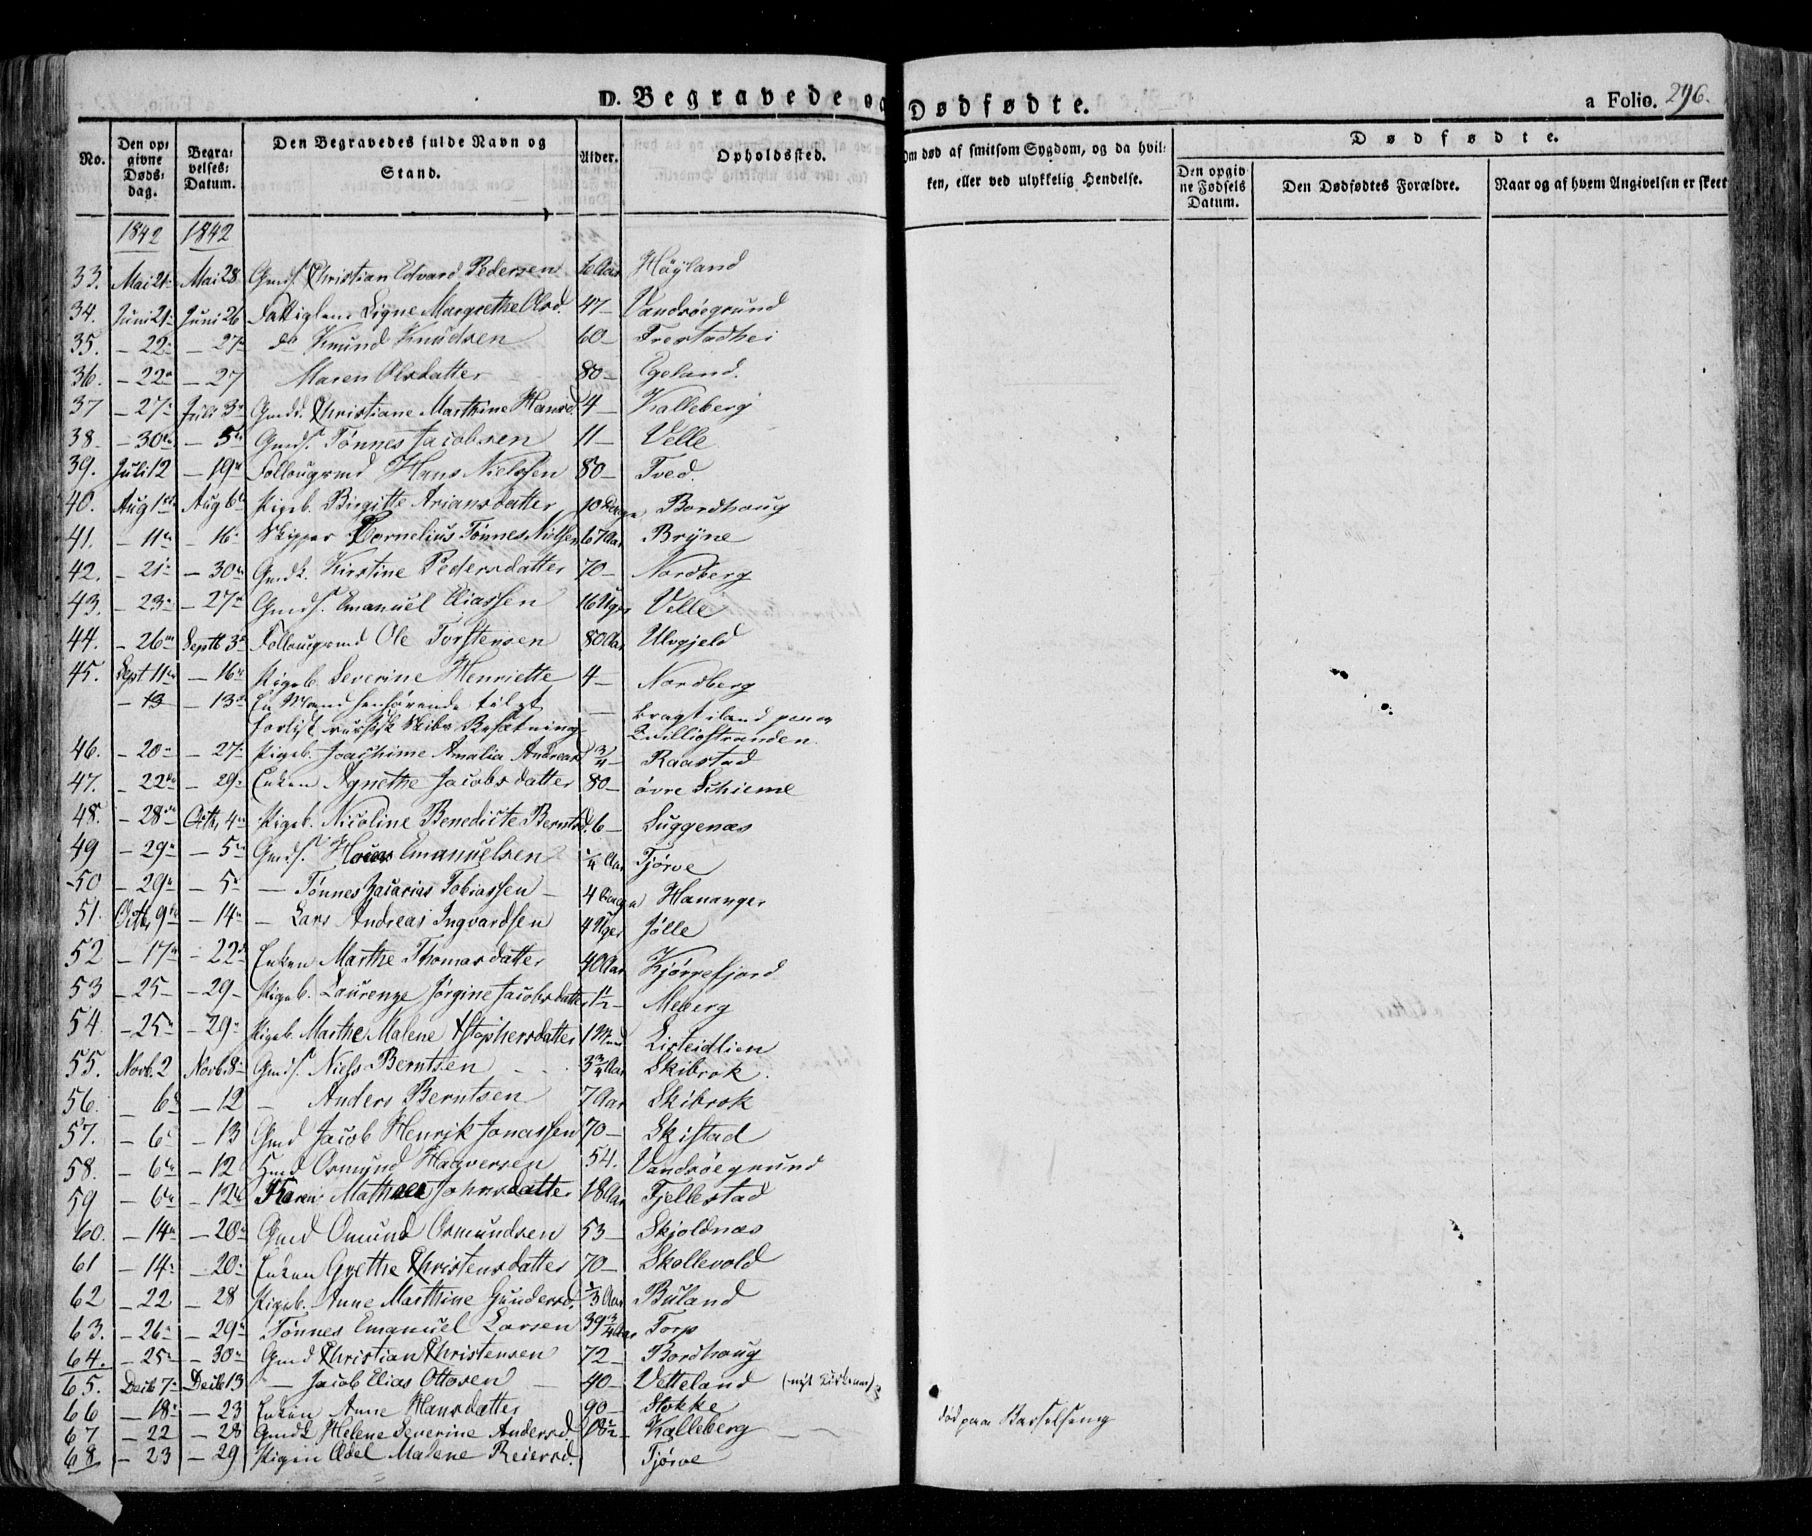 D. Begravede og Dødfødte.
a Folio. 296.
No.
Den op:givne Døds:dag.
Begra:velses:Datum.
Den Begravedes fulde Navn og Stand.
Alder.
Opholdssted.
Om død af smitsom Sygdom, og da hvil:ken, eller ved ulykkelig Hendelse.
Dødfødte.
Den opgivne Fødsels Datum.
Den Dødfødtes Forældre.
Naar og af hvem Angivelsen er skeet
1842 1842
33. Mai 21 Mai 28 Gmds. Christian Edvard Pedersen 6 Aar Høyland
34. Juni 21 Juni 26 Signe Margrethe Olsd. 47 – Vandsøegrund
35. – 22 – 27 do Knud Knudsen 60 – Frestadhei
36. – 22 – 27 Maren Olsdatter 80 – Egeland.
37 – 27 Juli 3 Gmdd. Christiane Marthine Hansd. 4 – Kalleberg
38. – 30 – 5 Gmds. Tønnes Jacobsen 11 – Velle
39. Juli 12 – 19 Follougsmd Hans Nielsen 80 – Tved.
40. Aug 1 Aug 6 Pigeb. Birgitte Ariansdatter 10 Dage Bordhaug
41. – 11 – 16 Skipper Cornelius Tønnes Nielsen 67 Aar Bryne
42. – 21 – 30 Gmdk. Kirstine Pedersdatter 70 – Nordberg
43. – 23 – 27 Gmds. Emanuel Eliassen 16 Uger Velle
44. – 26 Septb 3 Follougsmd Ole Torstensen 80 Aar Ulvgjeld
45. Sept 11 – 16 Pigeb. Severine Henriette 4 – Nordberg
– 13 – 13 En Mand henhørende til et – bragt i land paa
forlist russisk Skibs Besætning Qvilliostranden.
46. – 20 – 27 Pigeb. Joachime Amalia Andreasd. 3/4 – Raastad
47. – 22 – 29 Enken Agnethe Jacobsdatter 80 – øvre Schieme
48. – 28 Octb. 4 Pigeb. Nicoline Benedicte Berntsd. 6 – Luggenæs
49 – 29 – 5 Gmds. Hans Emanuelsen 1/4 Aar Tjørve
50 – 29 – 5 – Tønnes Zacarias Tobiassen – 4 Dage Hananger
51. Octb 9 – 14 – Lars Andreas Ingvardsen 4 Uger Jølle
52 – 17 – 22 Enken Marthe Thomasdatter 40 Aar Kjørrefjord
53 – 25 – 29 – Pigeb. Laurenze Jørgine Jacobsdatter 1 1/2 – Meberg
54. – 25 – 29 Pigeb. Marthe Malene Xstophersdatter 1 Mnd. Listeidlien
55. Novb. 2 Novb. 8 Gmds. Niels Berntsen 3 3/4 Aar Skibrok.
56. – 6 – 12 – Anders Berntsen 7 Aar Skibrok
57. – 6 – 13 Gmd Jacob Henrik Jonassen 70 – Skistad
58. – 6 – 12 Hmd Osmund Haaversen 54. Vandsøegrund
59 – 6 – 12 Karen Mathea Johnsdatter 18 Aar Fjellestad
60. – 14 – 20 Gmd Omund Osmundsen 53 – Skjoldnæs
61 – 14 – 20 Enken Grethe Christensdatter 70 – Skollevold
62 – 22 – 28 Pigeb. Anne Marthine Gundersd. 1/3 Aar Buland
63. – 26 – 29 Tønnes Emanuel Larsen 39 3/4 Aar Torp
64. – 25 – 30 Gmd Christian Christensen 72 – Bordhaug
65. Decb 7 Decb 13 – Jacob Elias Ottosen – 40 – Vetteland
66 – 18 – 23 Enken Anne Hansdatter 90 – Stokke
67 – 22 – 28 Gmdk Helene Severine Andersd. Kalleberg død paa Barselseng
68 – 23 – 29 Pigen Edel Malene Reiersd. Tjørve